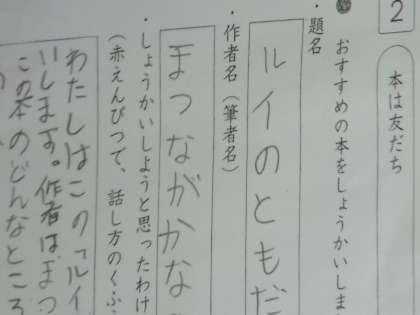 2
本は友だち
おすすめの本をしょうかいしま
・題名
ルイのともだ
・作者名(筆者名)
まつながかな
・しょうかいしようと思ったわけ
(赤えんぴつで、話し方のくふう
わたしはこの「ルイ
いします。作者は、まつ
この本のどんなところ